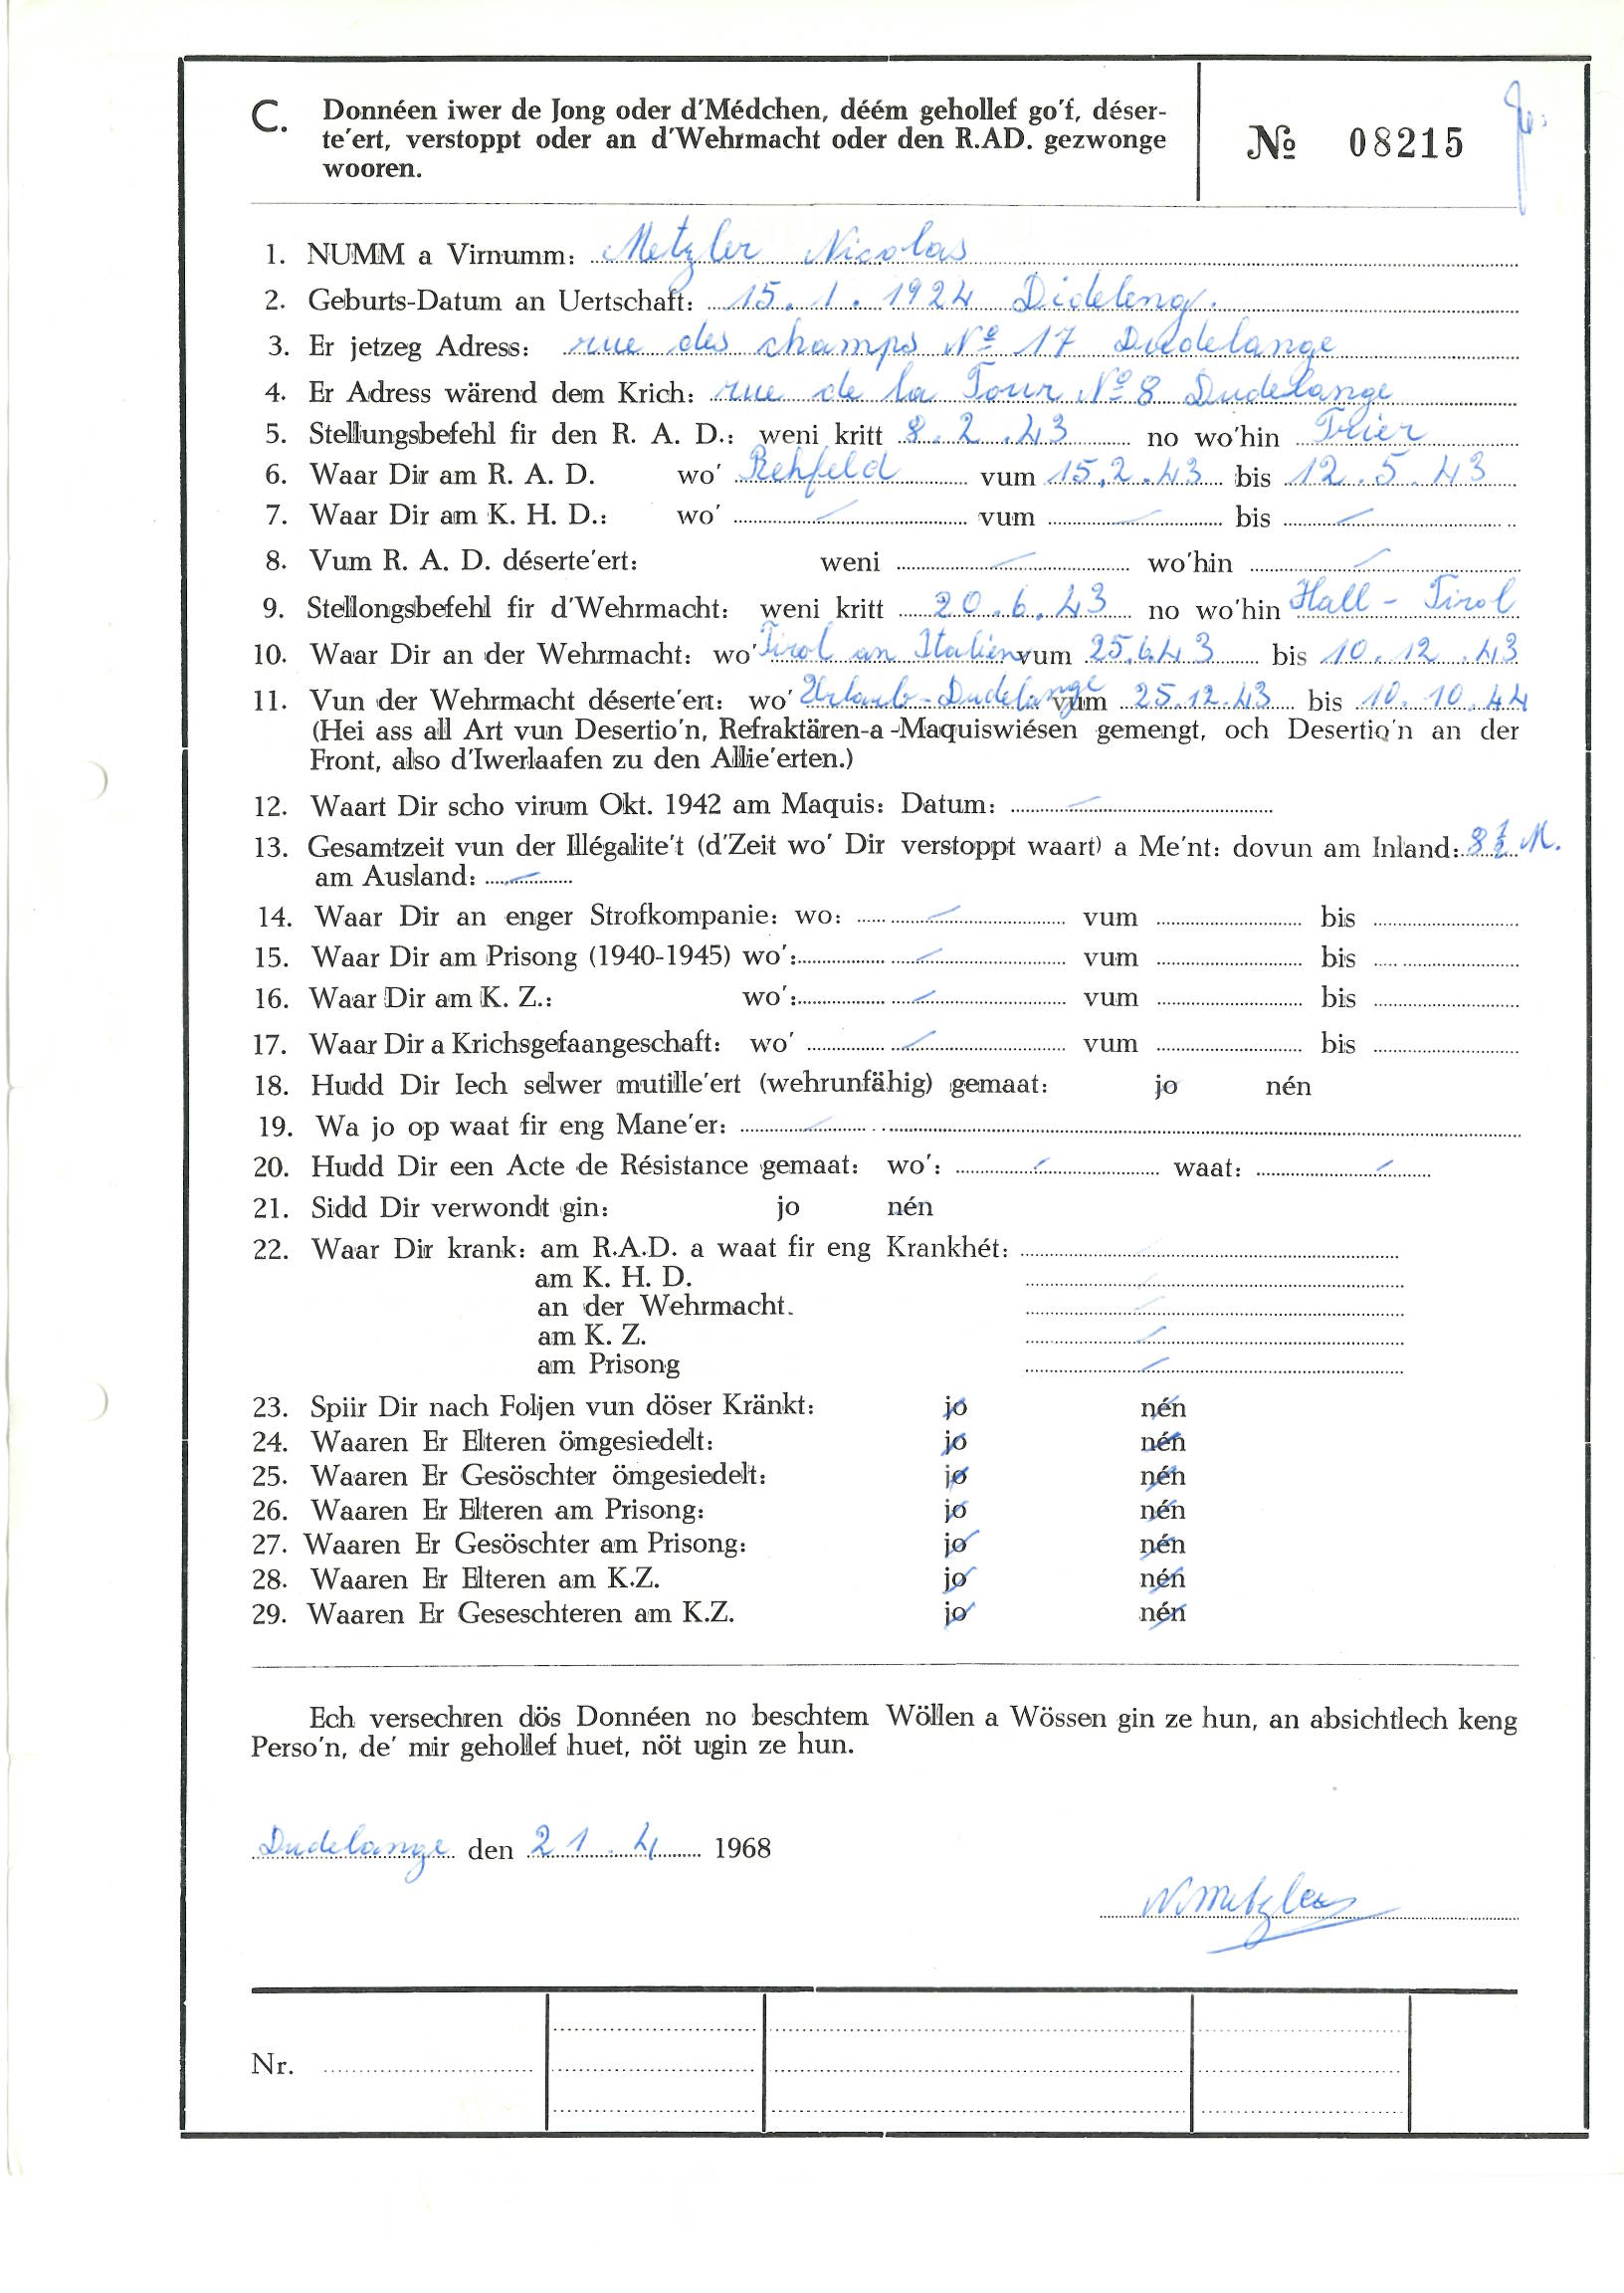 C. Donnéen iwer de Jong oder d'Médchen, déém gehollef go'f, déser-
te'ert, verstoppt oder an d'Wehrmacht oder den R.AD. gezwonge
wooren.
№ 08215
1. NUMM a Virnumm: Metzler Nicolas
2. Geburts-Datum an Uertschaft: 15. 1. 1924 Dideleng.
3. Er jetzeg Adress: rue des champs Nº 17 Dudelange
4. Er Adress wärend dem Krich: rue de la Tour Nº 8 Dudelange
5. Stellungsbefehl fir den R. A. D.: weni kritt 8. 2. 43 no wo'hin Trier
6. Waar Dir am R. A. D. wo' Rehfeld vum 15.2.43 bis 12.5.43
7. Waar Dir am K. H. D.: wo' vum bis
8. Vum R. A. D. déserte'ert: weni wo'hin
9. Stellongsbefehl fir d'Wehrmacht: weni kritt 20.6.43 no wo'hin Hall - Tirol
10. Waar Dir an der Wehrmacht: wo' Tirol an Italien vum 25.6.43 bis 10.12.43
11. Vun der Wehrmacht déserte'ert: wo' Urlaub-Dudelange vum 25.12.43 bis 10.10.44
(Hei ass all Art vun Desertio'n, Refraktären-a-Maquiswiésen gemengt, och Desertio'n an der
Front, also d'Iwerlaafen zu den Allie'erten.)
12. Waart Dir scho virum Okt. 1942 am Maquis: Datum:
13. Gesamtzeit vun der Illégalite't (d'Zeit wo' Dir verstoppt waart) a Me'nt: dovun am Inland: 8½ M.
am Ausland:
14. Waar Dir an enger Strofkompanie: wo: vum bis
15. Waar Dir am Prisong (1940-1945) wo': vum bis
16. Waar Dir am K. Z.: wo': vum bis
17. Waar Dir a Krichsgefaangeschaft: wo' vum bis
18. Hudd Dir Iech selwer mutille'ert (wehrunfähig) gemaat: jo nén
19. Wa jo op waat fir eng Mane'er:
20. Hudd Dir een Acte de Résistance gemaat: wo': waat:
21. Sidd Dir verwondt gin: jo nén
22. Waar Dir krank: am R.A.D. a waat fir eng Krankhét:
am K. H. D.
an der Wehrmacht.
am K. Z.
am Prisong
23. Spiir Dir nach Foljen vun döser Kränkt: jo nén
24. Waaren Er Elteren ömgesiedelt: jo nén
25. Waaren Er Gesöschter ömgesiedelt: jo nén
26. Waaren Er Elteren am Prisong: jo nén
27. Waaren Er Gesöschter am Prisong: jo nén
28. Waaren Er Elteren am K.Z. jo nén
29. Waaren Er Geseschteren am K.Z. jo nén
Ech versechren dös Donnéen no beschtem Wöllen a Wössen gin ze hun, an absichtlech keng
Perso'n, de' mir gehollef huet, nöt ugin ze hun.
Dudelange den 21. 4 1968
N. Metzler
Nr.